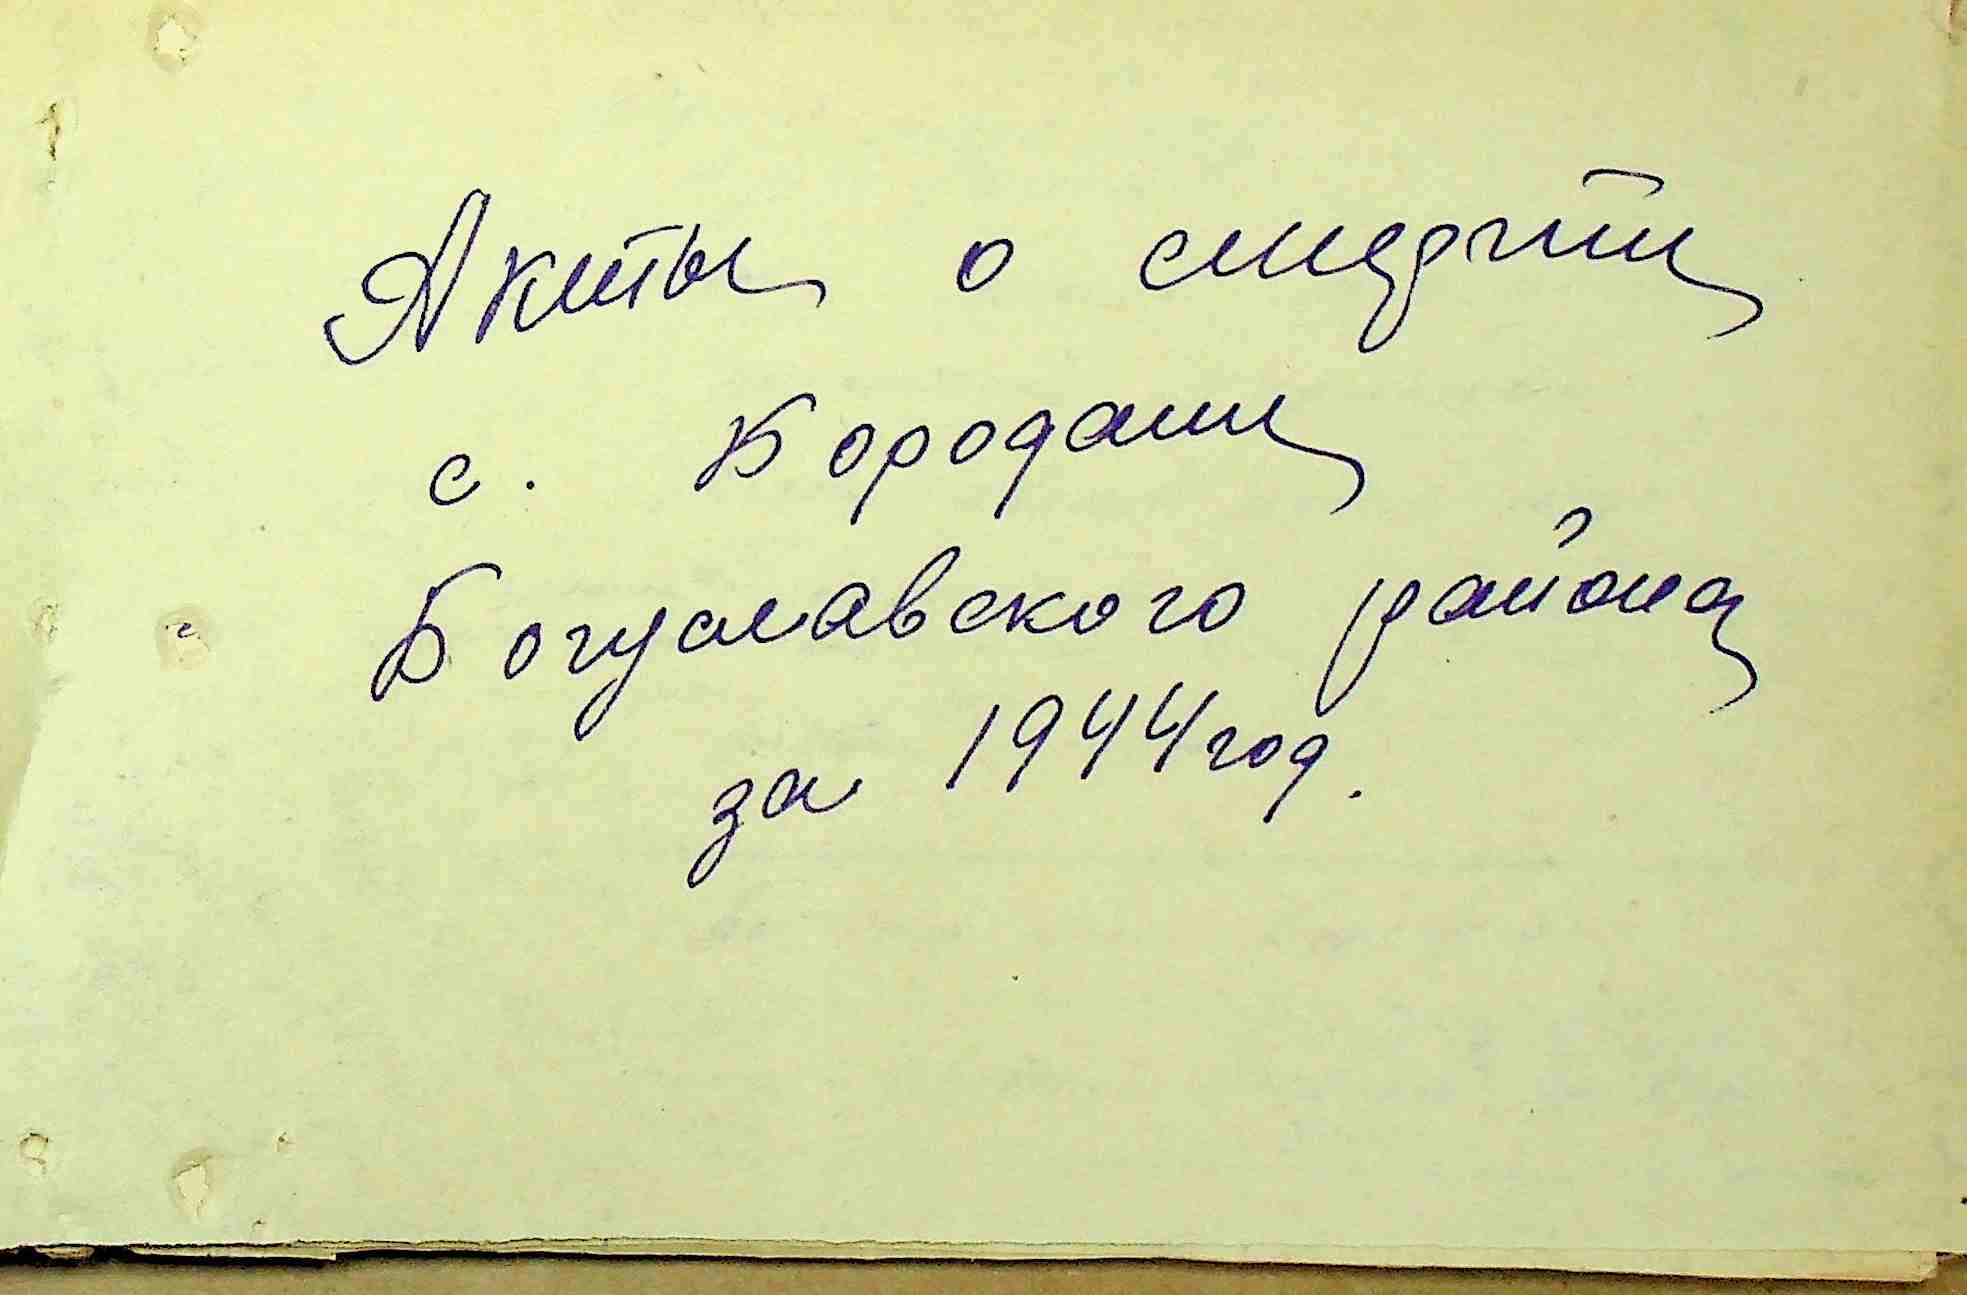 Акты о смерти
с. Бородани
Богуславского района
за 1944 год.